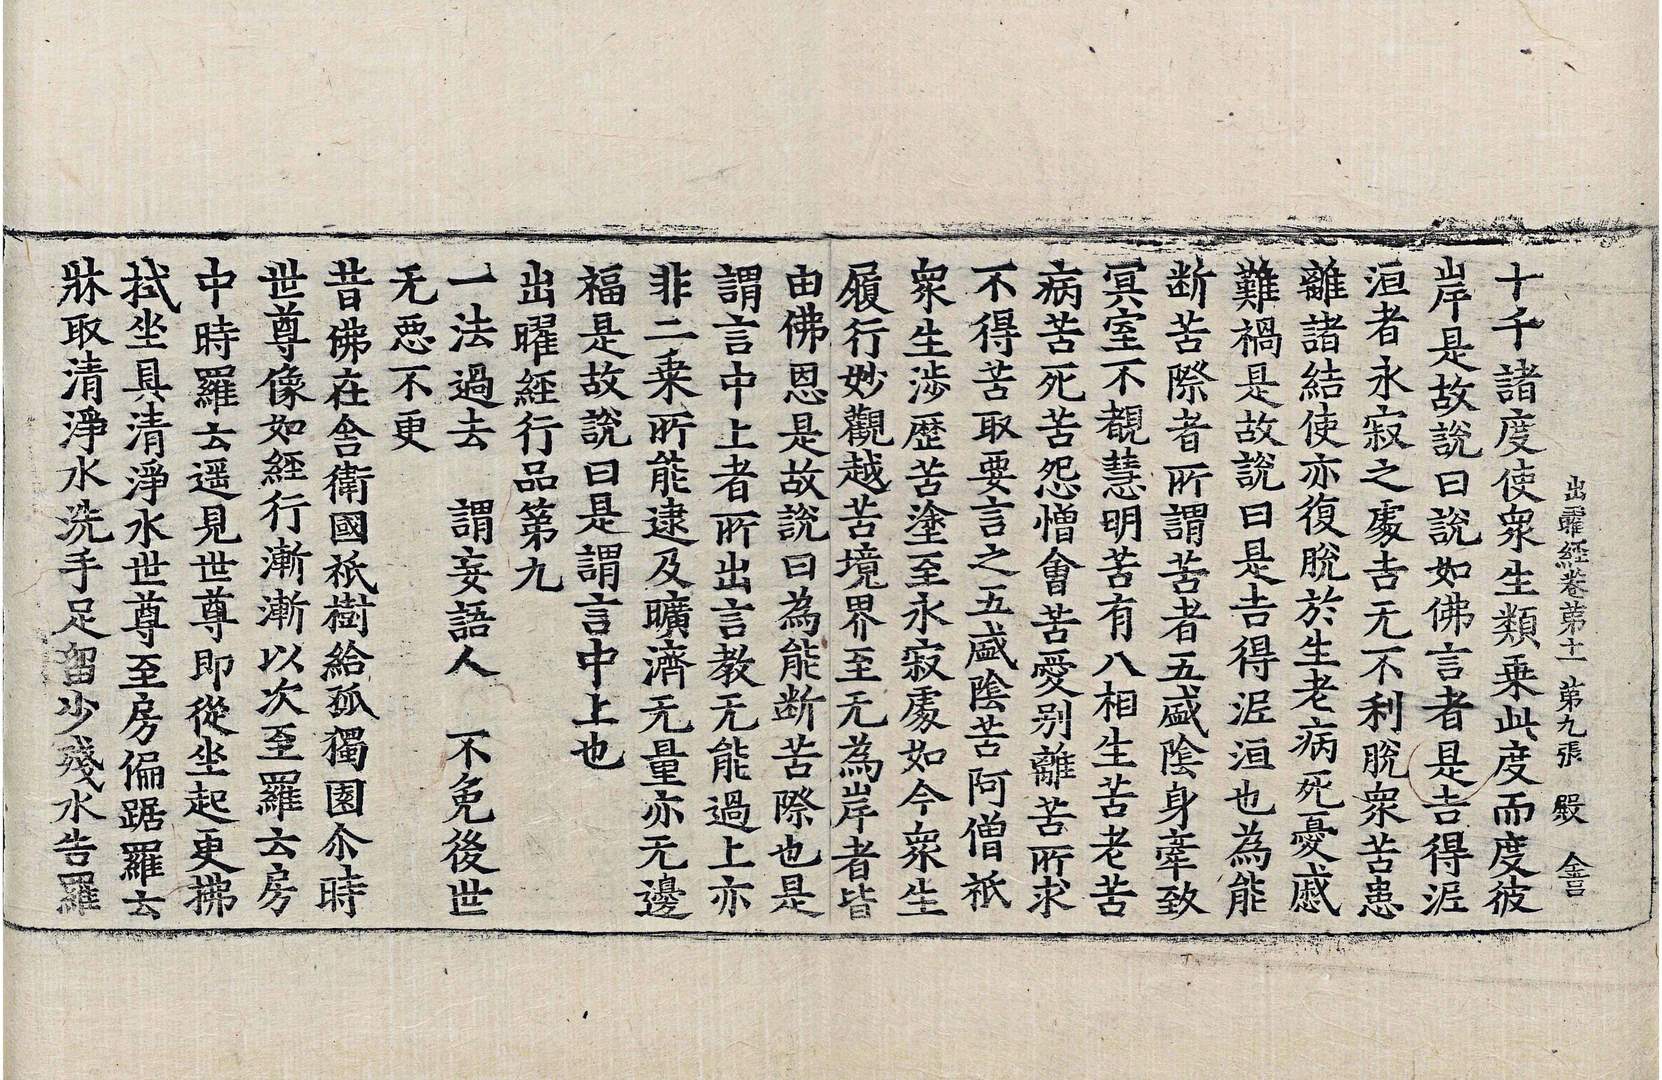 出曜經卷第十一 第九張 殷 金言
十千諸度使衆生類乗此度而度彼
岸是故說曰說如佛言者是吉得泥
洹者永寂之處吉无不利脫衆苦患
離諸結使亦復脫於生老病死憂慼
難禍是故說曰是吉得泥洹也為能
断苦際者所謂苦者五盛陰身牽致
冥室不覩慧明苦有八相生苦老苦
病苦死苦怨憎會苦愛别離苦所求
不得苦取要言之五盛陰苦阿僧祇
衆生渉歴苦塗至永寂處如今衆生
履行妙觀越苦境界至无為岸者皆
由佛恩是故說曰為能断苦際也是
謂言中上者所出言教无能過上亦
非二乗所能逮及曠濟无量亦无邊
福是故說曰是謂言中上也
出曜經行品第九
一法過去 謂妄語人 不免後世
无惡不更
昔佛在舎衛國祇樹給孤獨園尒時
世尊像如經行漸漸以次至羅云房
中時羅云遥見世尊即從坐起更拂
拭坐具清淨水世尊至房偏踞羅云
牀取清淨水洗手足留少殘水告羅